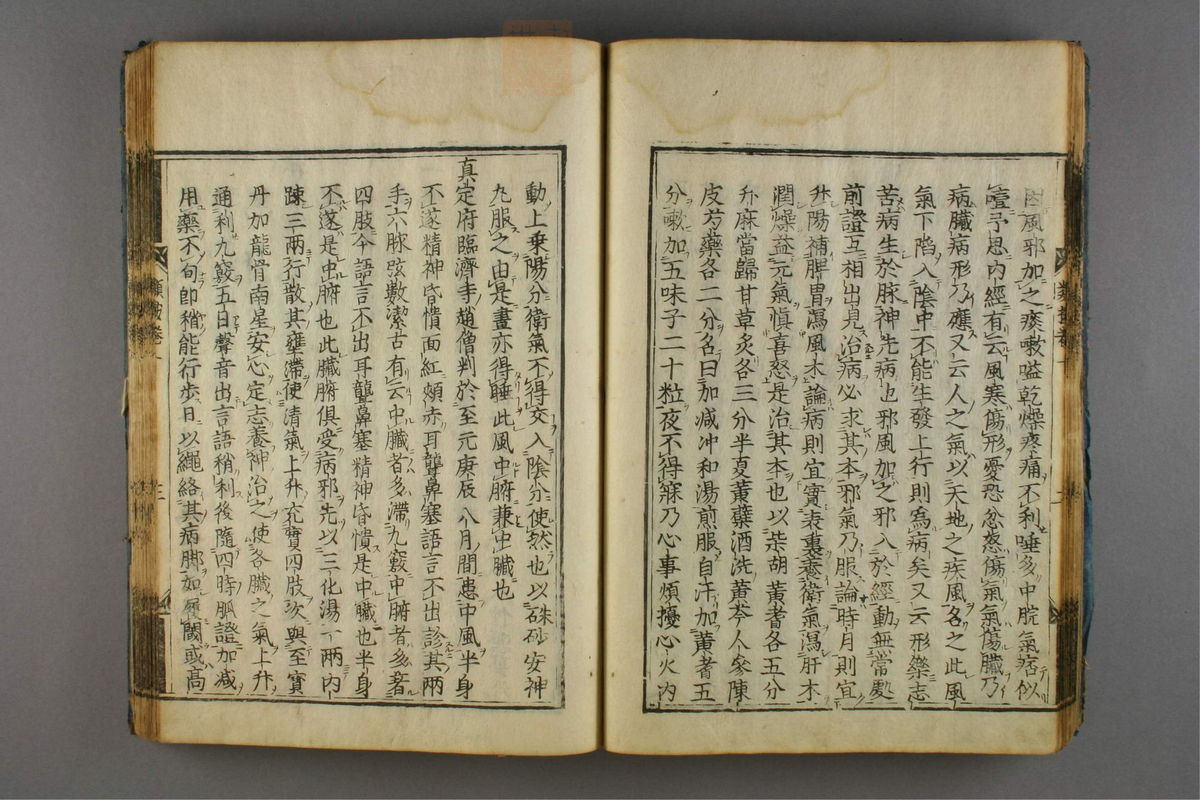 因風邪加之痰嗽嗌乾燥疼痛不利唾多中脘氣痞似
噎予思内經有云風寒傷形憂恐忿怒傷氣氣傷臟乃
病臟病形乃應又云人之氣以天地之疾風名之此風
氣下陷入陰中不能生發上行則為病矣又云形樂志
苦病生於脉神先病也邪風加之邪入於經動無常處
前證互相出見治病必求其本邪氣乃服論時月則宜
升陽補脾胃瀉風木論病則宜實表裏養衛氣瀉肝木
潤燥益元氣慎喜怒是治其本也以柴胡黄耆各五分
升麻當歸甘草炙各三分半夏黄蘗酒洗黄芩人參陳
皮芍藥各二分名曰加减冲和湯煎服自汗加黄耆五
分嗽加五味子二十粒夜不得寐乃心事煩擾心火内
動上乗陽分衛氣不得交入陰分使然也以硃砂安神
丸服之由是晝亦得睡此風中腑兼中臟也
真定府臨濟寺趙僧判於至元庚辰八月間患中風半身
不遂精神昏憒面紅頰赤耳聾鼻塞語言不出診其兩
手六脉弦數潔古有云中臟者多滯九竅中腑者多著
四肢今語言不出耳聾鼻塞精神昏憒是中臟也半身
不遂是中腑也此臟腑俱受病邪先以三化湯一兩内
踈三兩行散其壅滯使清氣上升充實四肢次與至寶
丹加龍骨南星安心定志養神治之使各臟之氣上升
通利九竅五日聲音出言語稍利後隨四時脈證加减
用藥不旬即稍能行歩日以繩絡其病脚如履閾或高